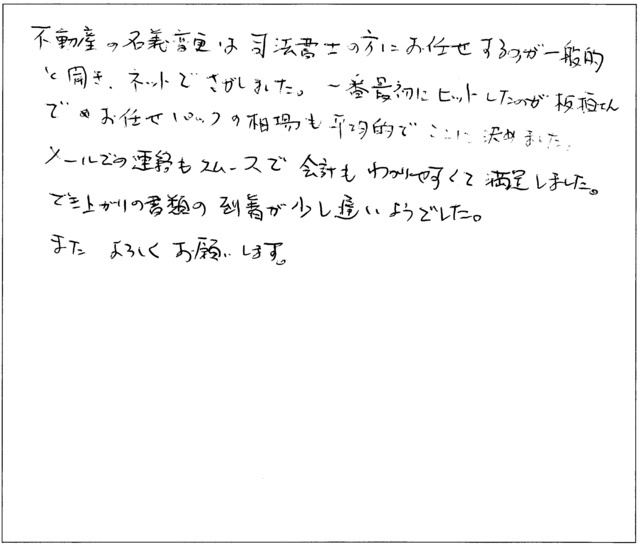 不動産の名義変更は司法書士の方にお任せするのが一般的
と聞き、ネットでさがしました。一番最初にヒットしたのが板垣さん
で お任せパックの相場も平均的でここに決めました。
メールでの連絡もスムースで会計もわかりやすくて満足しました。
でき上がりの書類の到着が少し遅いようでした。
また よろしくお願いします。